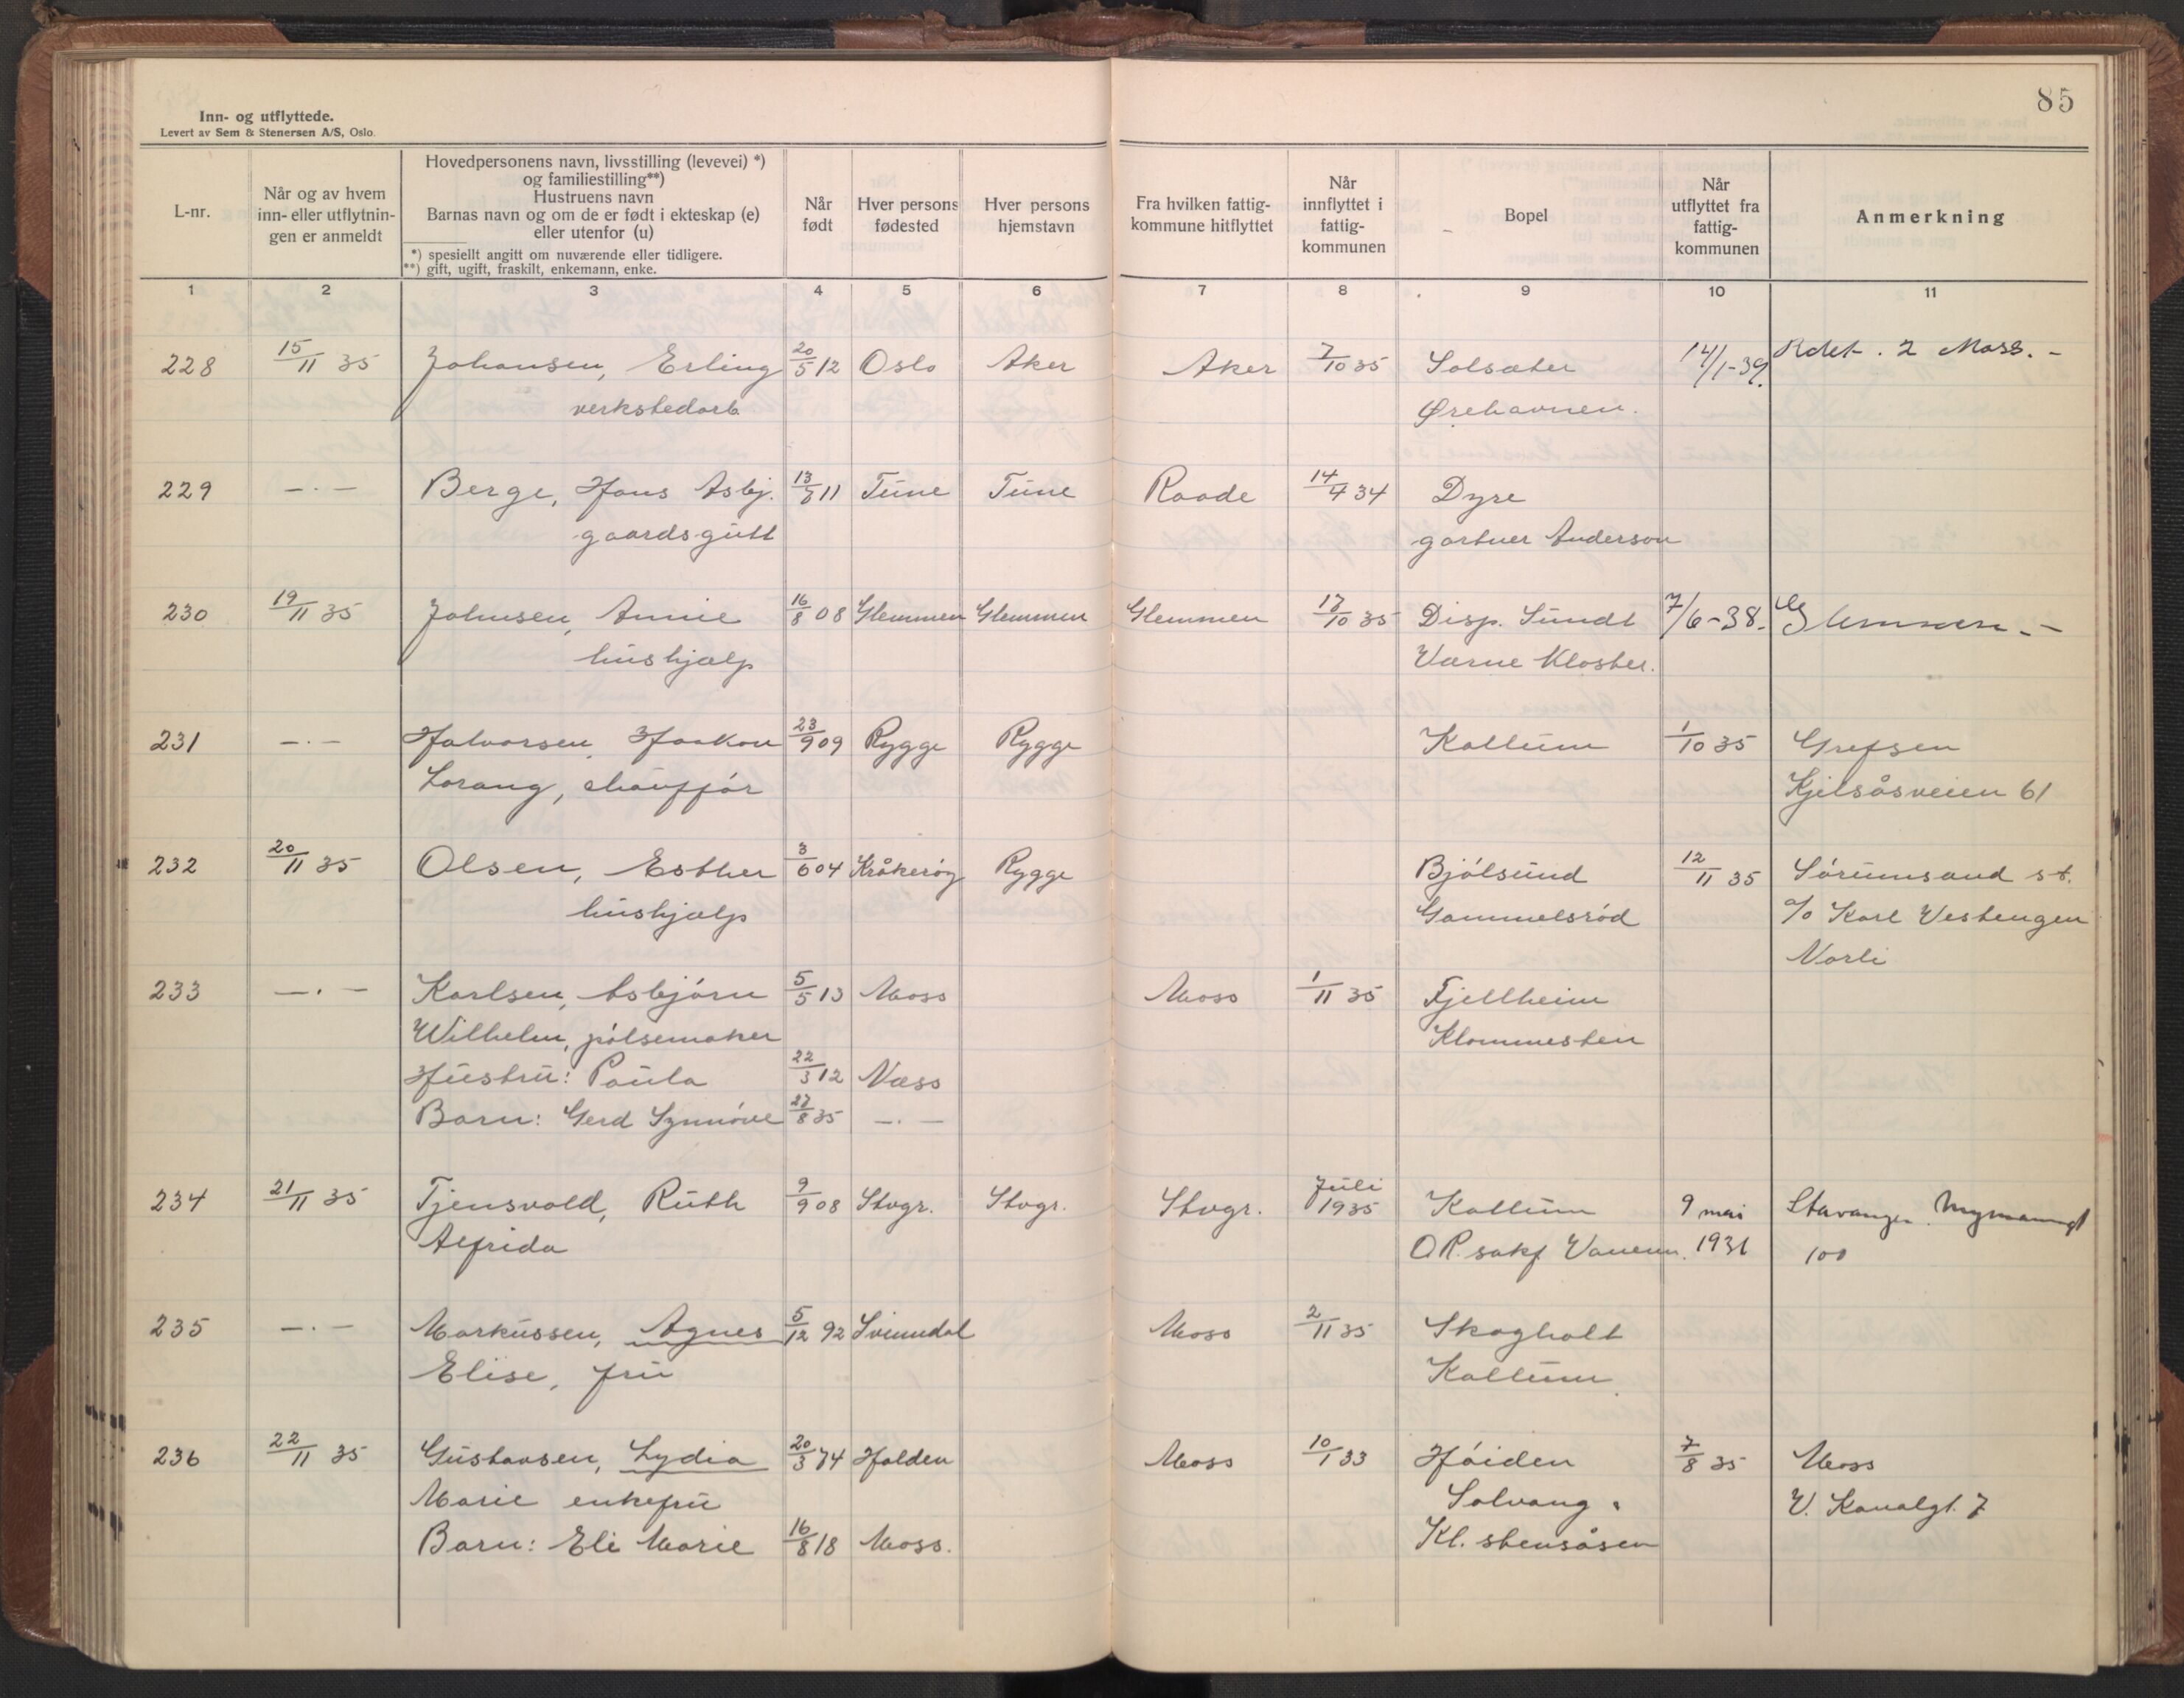 85
Inn- og utflyttede.
Levert av Sem & Stenersen A/S, Oslo.
L-nr.
Når og av hvem
inn- eller utflytnin-
gen er anmeldt
Hovedpersonens navn, livsstilling (levevei) *)
og familiestilling**)
Hustruens navn
Barnas navn og om de er født i ekteskap (e)
eller utenfor (u)
*) spesiellt angitt om nuværende eller tidligere.
**) gift, ugift, fraskilt, enkemann, enke.
Når
født
Hver persons
fødested
Hver persons
hjemstavn
Fra hvilken fattig-
kommune hitflyttet
Når
innflyttet i
fattig-
kommunen
Bopel
Når
utflyttet fra
fattig-
kommunen
Anmerkning
1 2 3 4 5 6 7 8 9 10 11
228 15/11 35 Johansen, Erling 20/5 12 Oslo Aker Aker 7/10 35 Solsæter 14/1-39. 2 Moss. -
verkstedarb Ørehavnen.
229 -·- Berge, Hans Asbj. 13/ 11 Tune Tune Raade 14/4 34 Dyre
gaardsgutt gartner Anderson
230 19/11 35 Johnsen, Annie 16/8 08 Glemmen Glemmen Glemmen 17/10 35 Disp. Sundt 7/6-38. Glemmen. -
hushjælp Værne Kloster.
231 -·- Halvorsen, Haakon 23/9 09 Rygge Rygge Kallum 1/10 35 Grefsen
Lorang, chauffór Kjelsåsveien 61
232 20/11 35 Olsen, Esther 3/6 04 Kråkeröy Rygge Bjólsund 12/11 35 Sórumsand st.
hushjælp Gammelsród c/o Karl Vestengen
Norli
233 -·- Karlsen, Asbjórn 5/5 13 Moss Moss 1/11 35 Fjellheim
Wilhelm, pólsemaker Klommesten
Hustru: Paula 22/3 12 Næss
Barn: Gerd Synnóve 27/8 35 -·-
234 21/11 35 Tjensvold, Ruth 9/9 08 Stvgr. Stvgr. Stvgr. Juli 1935 Kallum 9 mai Stavanger.
Alfrida O.R. sakf. 193 100
235 -·- Markussen, Agnes 5/12 92 Svinndal Moss 2/11 35 Skogholt
Elise, fru Kallum
236 22/11 35 Gustavsen, Lydia 20/3 74 Halden Moss 10/1 33 Hóiden 7/8 35 Moss
Marie enkefru Solvang V. Kanalgt. 7
Barn: Eli Marie 16/8 18 Moss. Kl. stensåsen